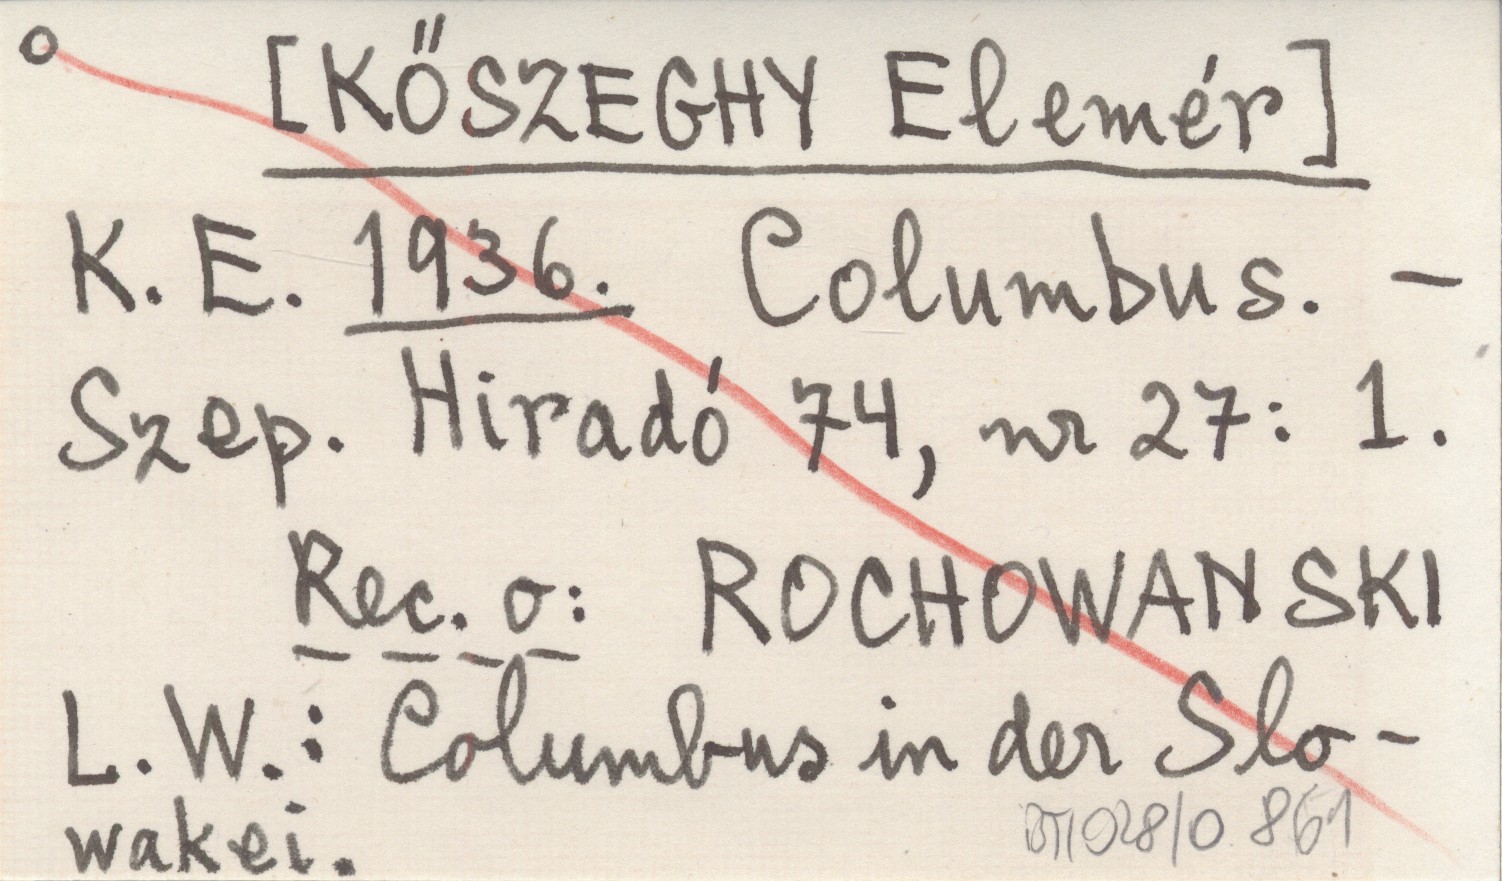 [KŐSZEGHY Elemér]
K. E. 1936. Columbus. –
Szep. Hiradó 74, nr 27: 1.
Rec. o: ROCHOWANSKI
L. W.: Columbus in der Slo-
wakei.
861